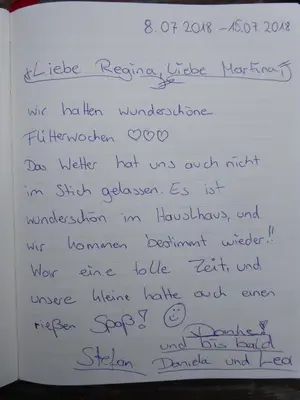 8.07.2018 - 15.07.2018
Liebe Regina, Liebe Martina,
wir hatten wunderschöne
Flitterwochen ♡♡♡
Das Wetter hat uns auch nicht
im Stich gelassen. Es ist
wunderschön im Hauslhaus, und
wir kommen bestimmt wieder!!
War eine tolle Zeit, und
unsere kleine hatte auch einen
rießen Spaß! ☺
Danke!
und bis bald
Stefan Daniela und Lea